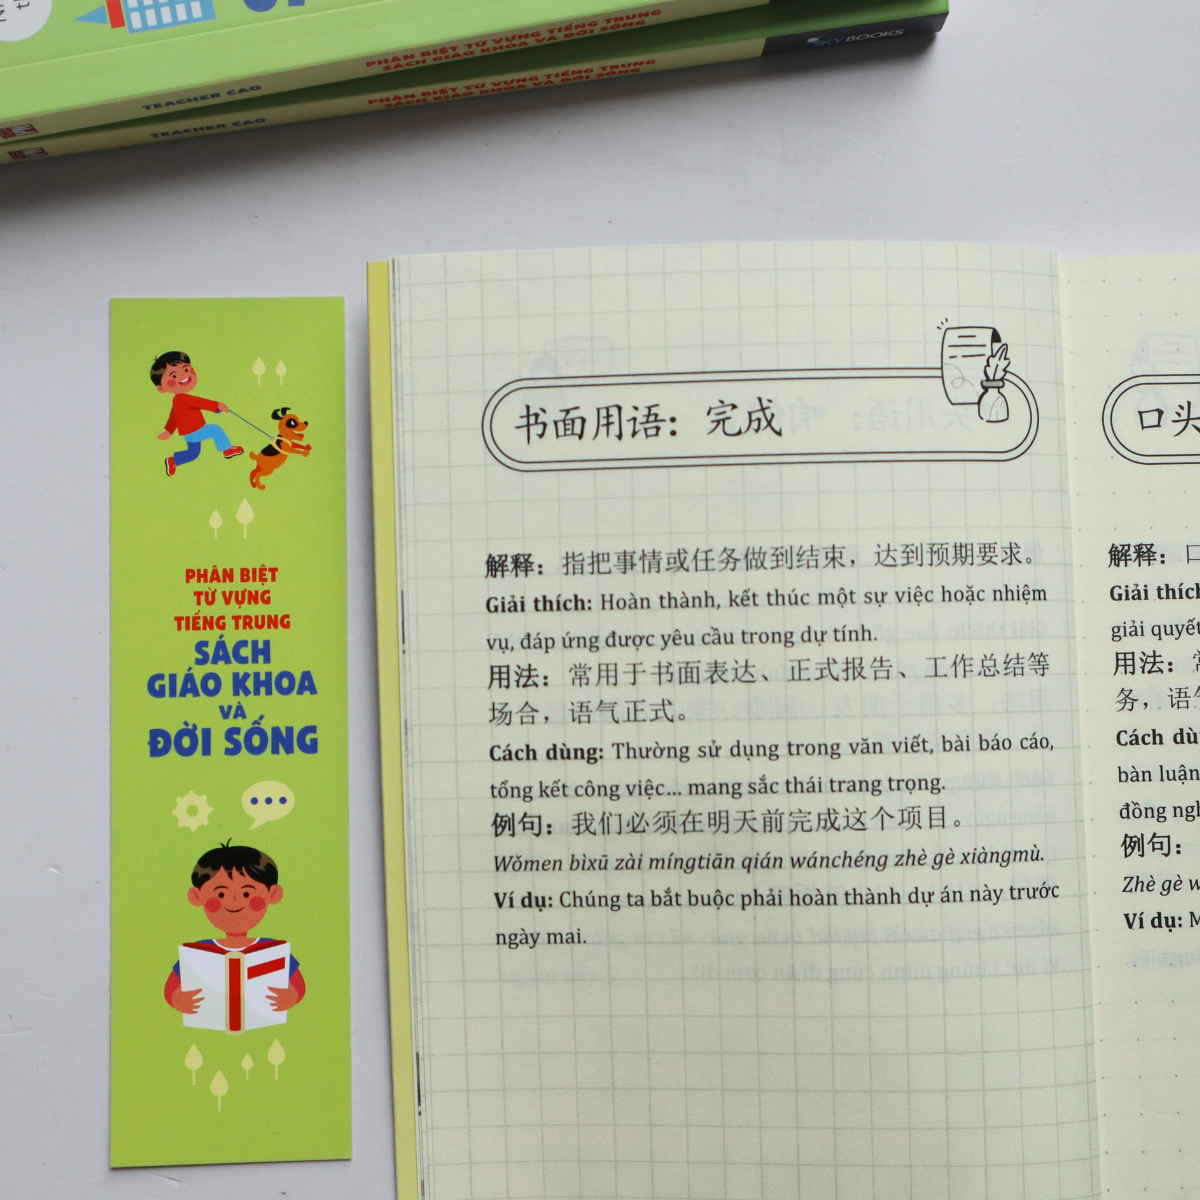 PHÂN BIỆT TỪ VỰNG TIẾNG TRUNG
SÁCH GIÁO KHOA VÀ ĐỜI SỐNG
TEACHER CAO
SKYBOOKS
PHÂN BIỆT TỪ VỰNG TIẾNG TRUNG
SÁCH GIÁO KHOA VÀ ĐỜI SỐNG
TEACHER CAO
PHÂN BIỆT
TỪ VỰNG
TIẾNG TRUNG
SÁCH
GIÁO KHOA
VÀ
ĐỜI SỐNG
书面用语：完成
解释：指把事情或任务做到结束，达到预期要求。
Giải thích: Hoàn thành, kết thúc một sự việc hoặc nhiệm
vụ, đáp ứng được yêu cầu trong dự tính.
用法：常用于书面表达、正式报告、工作总结等
场合，语气正式。
Cách dùng: Thường sử dụng trong văn viết, bài báo cáo,
tổng kết công việc... mang sắc thái trang trọng.
例句：我们必须在明天前完成这个项目。
Wǒmen bìxū zài míngtiān qián wánchéng zhè gè xiàngmù.
Ví dụ: Chúng ta bắt buộc phải hoàn thành dự án này trước
ngày mai.
口头
解释：口
Giải thích
giải quyết
用法：常
务，语气
Cách dù
bàn luận
đồng ngh
例句：
Zhè gè w
Ví dụ: M